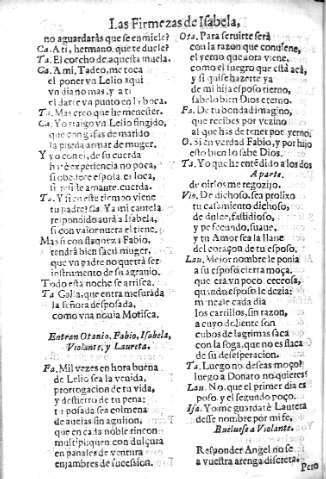 Las Firmezas de Isabela,
no aguardarás que se enmiele?
Ca. A ti, hermano, que te duele?
Ta. El corcho de aquesta muela.
Ca. A mi, Tadeo, me toca
el poner va Lelio aqui
vn dia no mas, y a ti
el darte vn punto en la boca.
Ta. Mas creo que he menester.
Ca. Yo traigo vn Lelio fingido,
que con gafas de marido
la piedad armar de muger.
Y o conei, de su cuerda
haré experiencia no poca,
si obedece espola, es loca,
si resiste amante, cuerda.
Ta. Y si en este tiempo viene
tu padre? Ca. Ya mi cautela
respondió aurá a Isabela,
si con valor nueua el tiene.
Mas si con flaqueza Fabio,
tendrá bien fácil muger,
que vn padre no querrá ser
instrumento de su agrauio.
Todo esta noche se arrisca.
Ta Calla, que entra mesurada
la señora desposada,
como vna nouia Morisca.
Entran Otauio, Fabio, Isabela,
Violante, y Laureta.
Fa. Mil vezes en hora buena
de Lelio sea la venida,
prorrogacion de tu vida,
y destierro de tu pena;
tu posada sea colmena
de auejas sin aguijon,
que en cada noble rincon
multipliquen con dulçura
en panales de ventura
enjambres de sucession.
Ota. Para seruirte será
con la razon que conuiene,
el yerno que aora viene,
como el suegro que está acá,
y si quise hazerte ya
de mi hija esposo eterno,
sabelo bien Dios eterno.
Fa. De tu bondad imagino,
que recibes por vezino
al que has de tener por yerno.
O. Si en verdad Fabio, y por hijo
esto bien lo sabe Dios.
Ta. Yo que he entēdido a los dos
Aparte.
de oirlos me regozijo.
Vio. De dichoso, sea prolixo
tu casamiento dichoso,
de dulce, fastidioso,
y pesse cando, suaue,
y tu Amor sea la llaue
del coraçon de tu esposo,
Lau. Mejor nombre le ponia
a su esposo cierra moça,
que era vn poco ceceosa,
quando esposo le dezia;
mireale cada dia
los carrillos, sin razon,
a cuyo doliente son
cubos de lagrimas saca
con la soga, que no es flaca
de su desesperacion.
Ta. Luego no deseas moço?
luego a Donato no quieres?
Lau. No, que el primer dia es
poso, y el segundo poço.
Isa. Yo me guardaré Laureta
desse nombre por mi fe,
Bueluese a Violante.
Responder Angel no se
a vuestra arenga discreta.
Pero